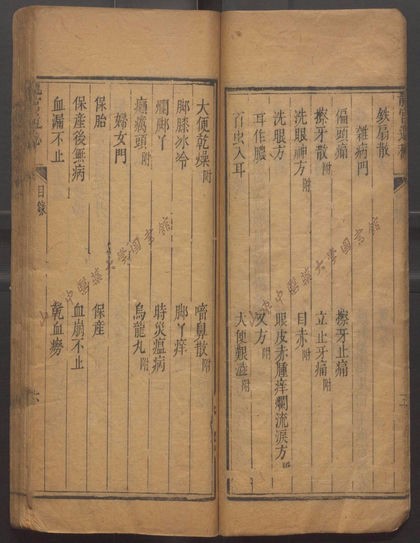 鉄扇散
雜病門
偏頭痛
擦牙止痛
擦牙散 附
立止牙痛 附
洗眼神方 附
目赤 附
洗眼方
眼皮赤腫痒爛流淚方 附
耳作膿
又方 附
百虫入耳
大便艱澁 附
大便乾燥 附
嚏鼻散 附
脚膝冰冷
脚丫痒
爛脚丫
時災瘟病
癩頭 附
烏龍丸 附
婦女門
保胎
保產
保產後無病
血崩不止
血漏不止
乾血癆
目錄